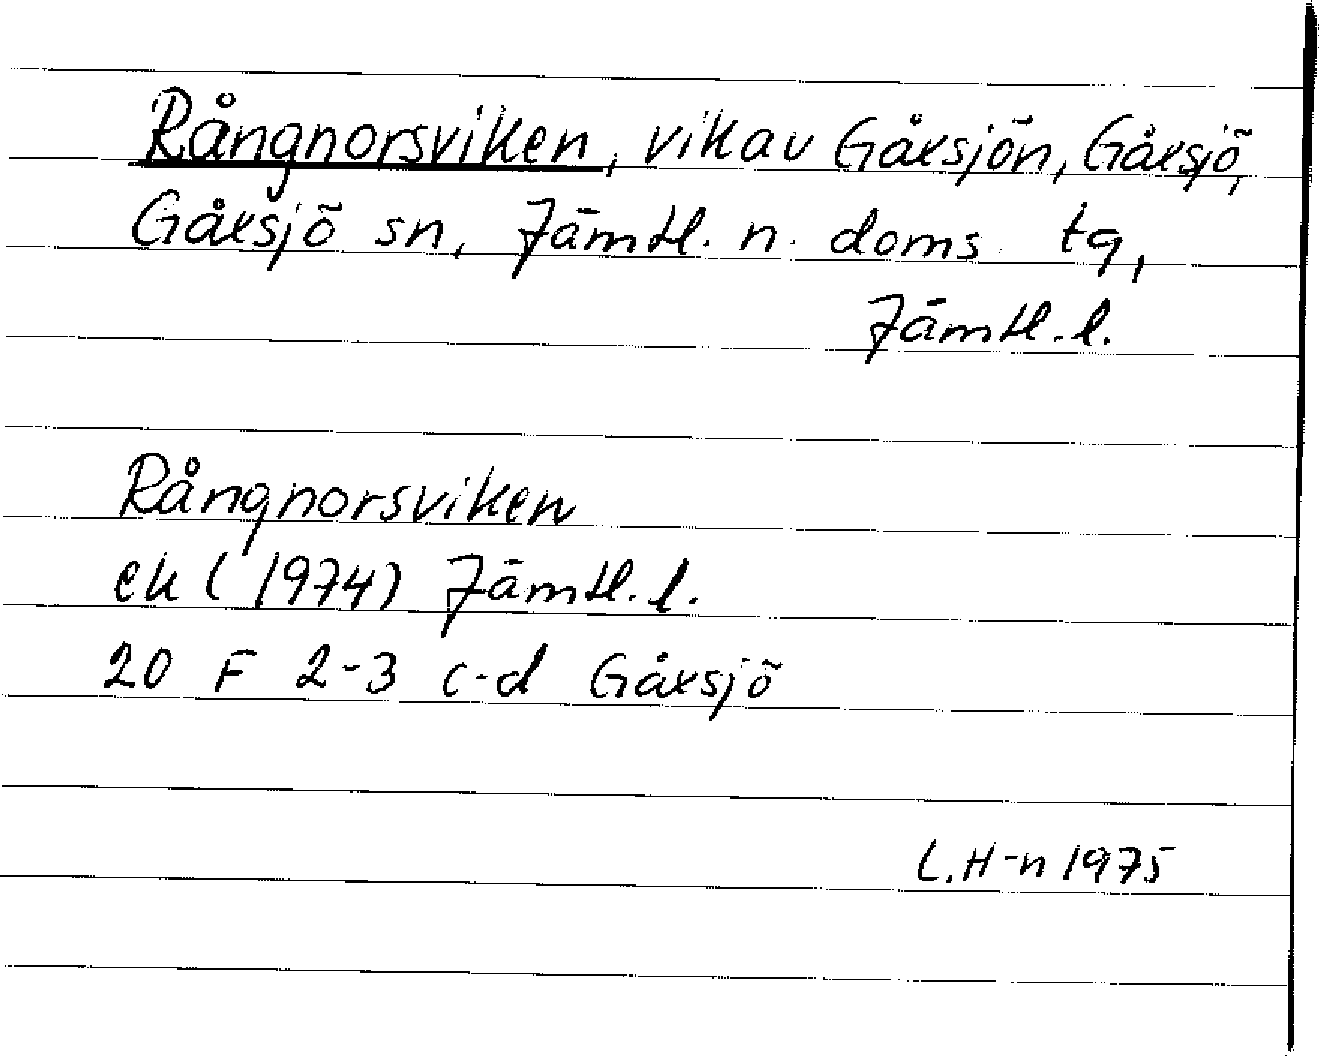 Rångnorsviken, vik av Gåxsjön, Gåxsjö,
Gåxsjö sn, Jämtl. n. doms tg,
Jämtl. l.
Rångnorsviken
ek (1974) Jämtl. l.
20 F 2-3 c-d Gåxsjö
L. H-n 1975